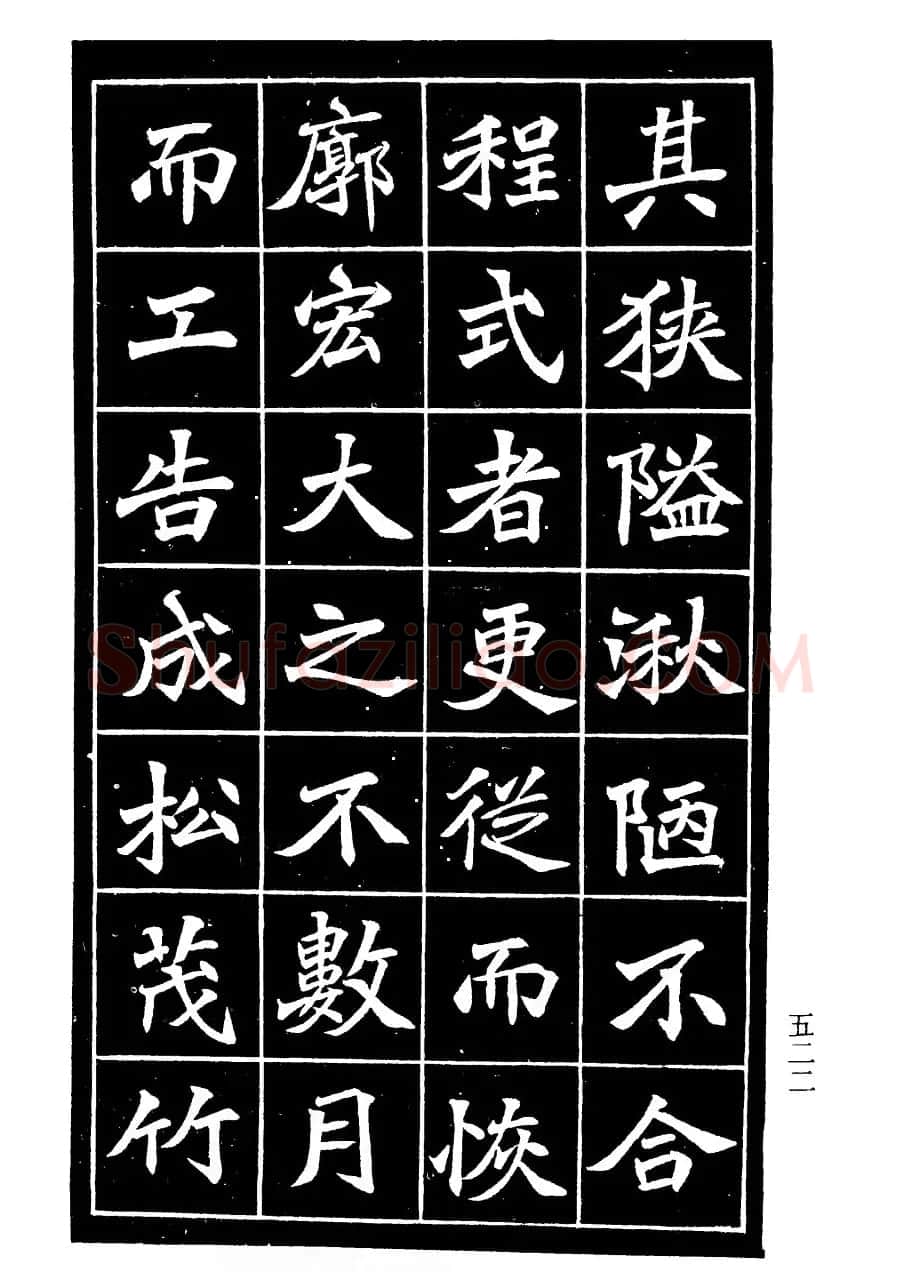 其狹隘湫陋不合
程式者更從而恢
廓宏大之不數月
而工告成松茂竹
五二二
Shufaziliao.COM